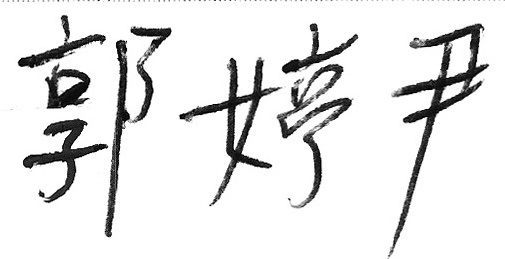 郭婷尹